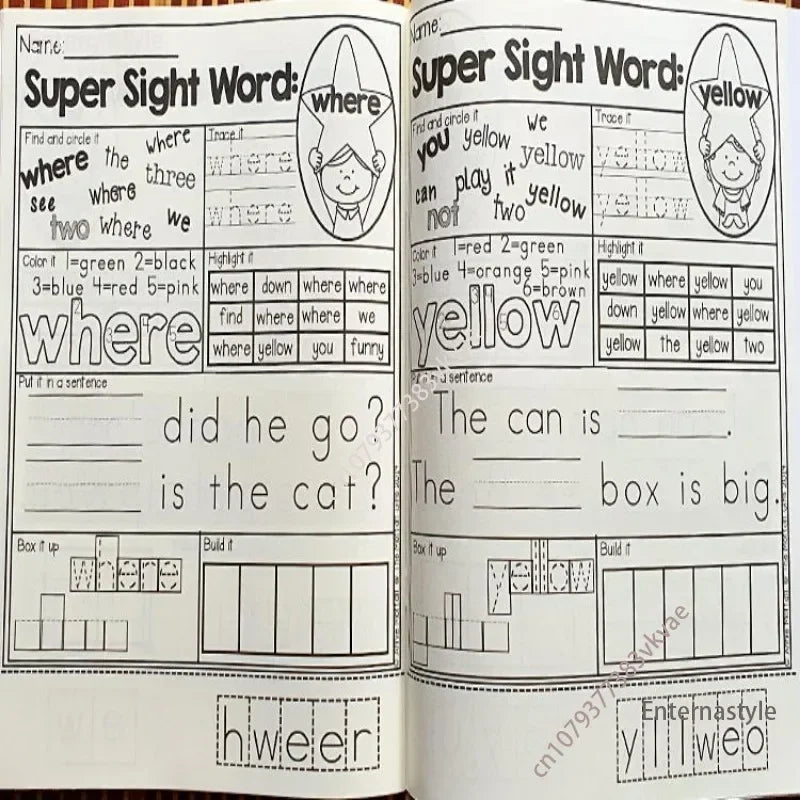 Name:
Super Sight Word:
where
Find and circle it
where the where
see where three
two where we
Trace it
where
where
Color it 1=green 2=black
3=blue 4=red 5=pink
where
Highlight it
where down where where
find where where we
where yellow you funny
Put it in a sentence
did he go?
is the cat?
Box it up
where
Build it
hweer
Name:
Super Sight Word:
yellow
Find and circle it
you yellow we
yellow
can play it yellow
not two
Trace it
yellow
yellow
Color it 1=red 2=green
3=blue 4=orange 5=pink
6=brown
yellow
Highlight it
yellow where yellow you
down yellow where yellow
yellow the yellow two
Put it in a sentence
The can is .
The box is big.
Box it up
yellow
Build it
yllweo
Enternastyle
cn1079377383vkvae